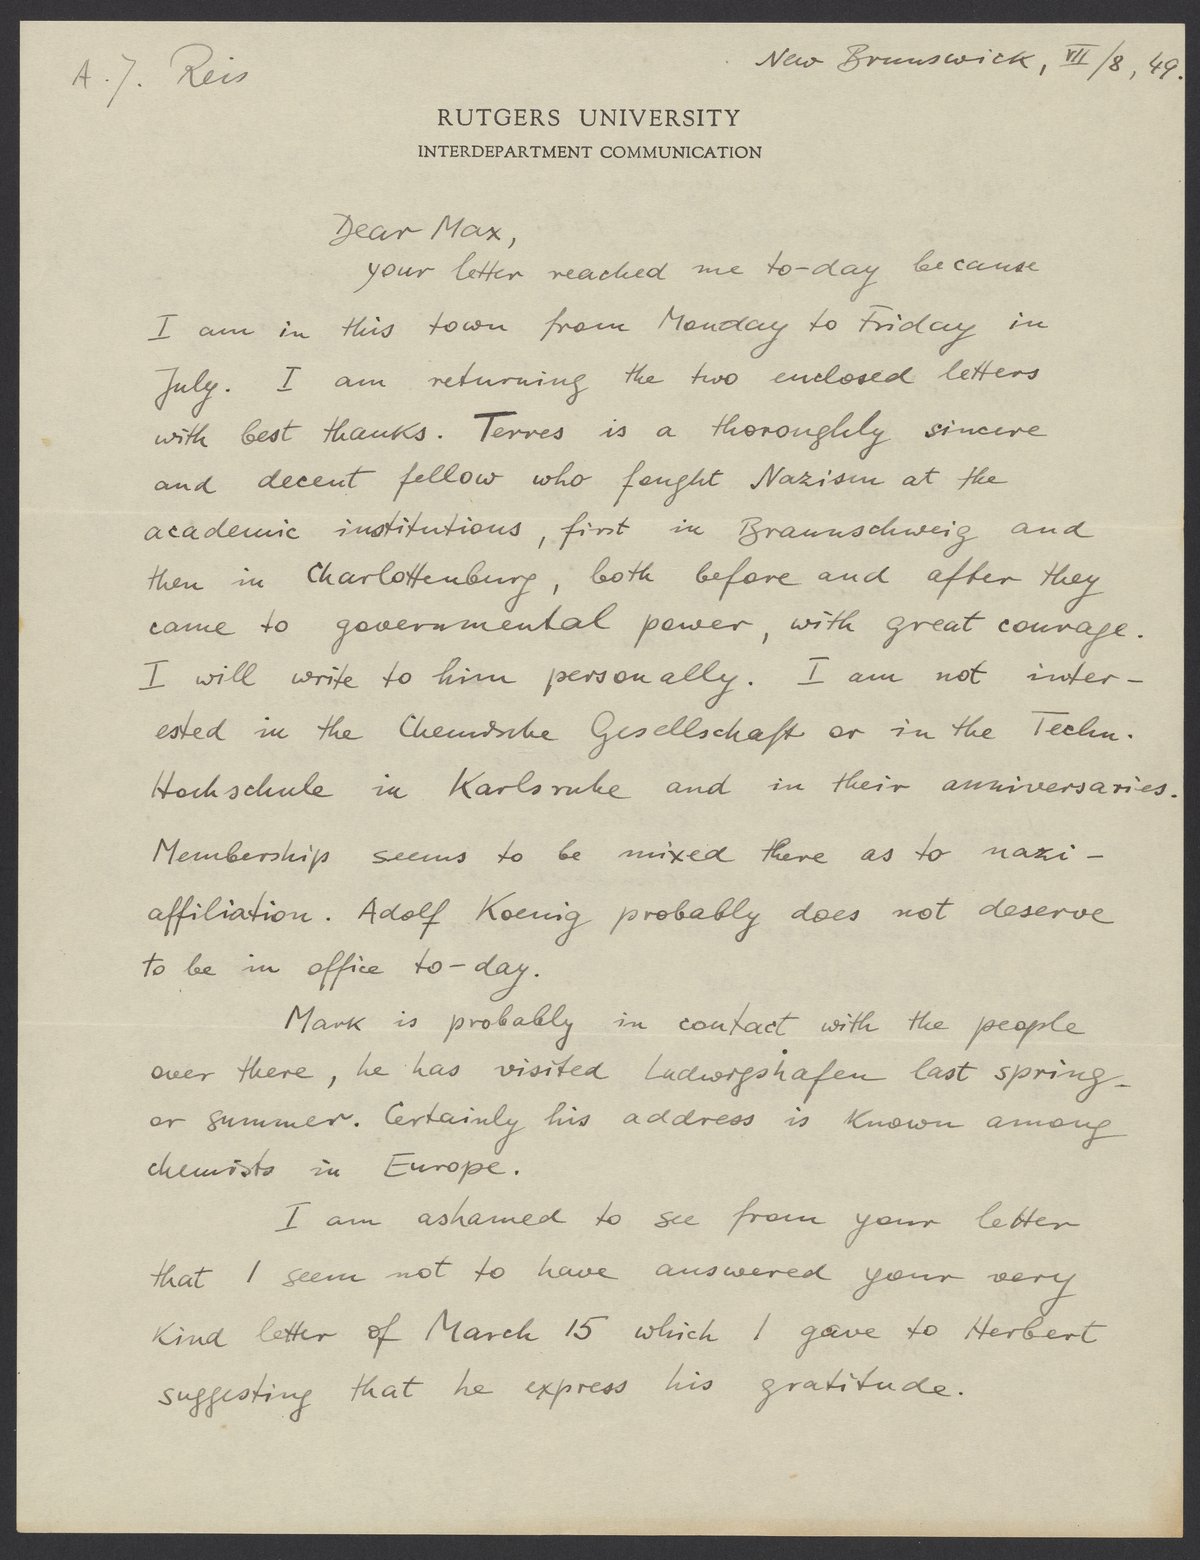 A. J. Reis
New Brunswick, VII/8, 49.
RUTGERS UNIVERSITY
INTERDEPARTMENT COMMUNICATION
Dear Max,
your letter reached me to-day because
I am in this town from Monday to Friday in
July. I am returning the two enclosed letters
with best thanks. Terres is a thoroughly sincere
and decent fellow who fought Nazism at the
academic institutions, first in Braunschweig and
then in Charlottenburg, both before and after they
came to governmental power, with great courage.
I will write to him personally. I am not inter-
ested in the Chemische Gesellschaft or in the Techn.
Hochschule in Karlsruhe and in their anniversaries.
Membership seems to be mixed there as to nazi-
affiliation. Adolf Koenig probably does not deserve
to be in office to-day.
Mark is probably in contact with the people
over there, he has visited Ludwigshafen last spring
or summer. Certainly his address is known among
chemists in Europe.
I am ashamed to see from your letter
that I seem not to have answered your very
kind letter of March 15 which I gave to Herbert
suggesting that he express his gratitude.